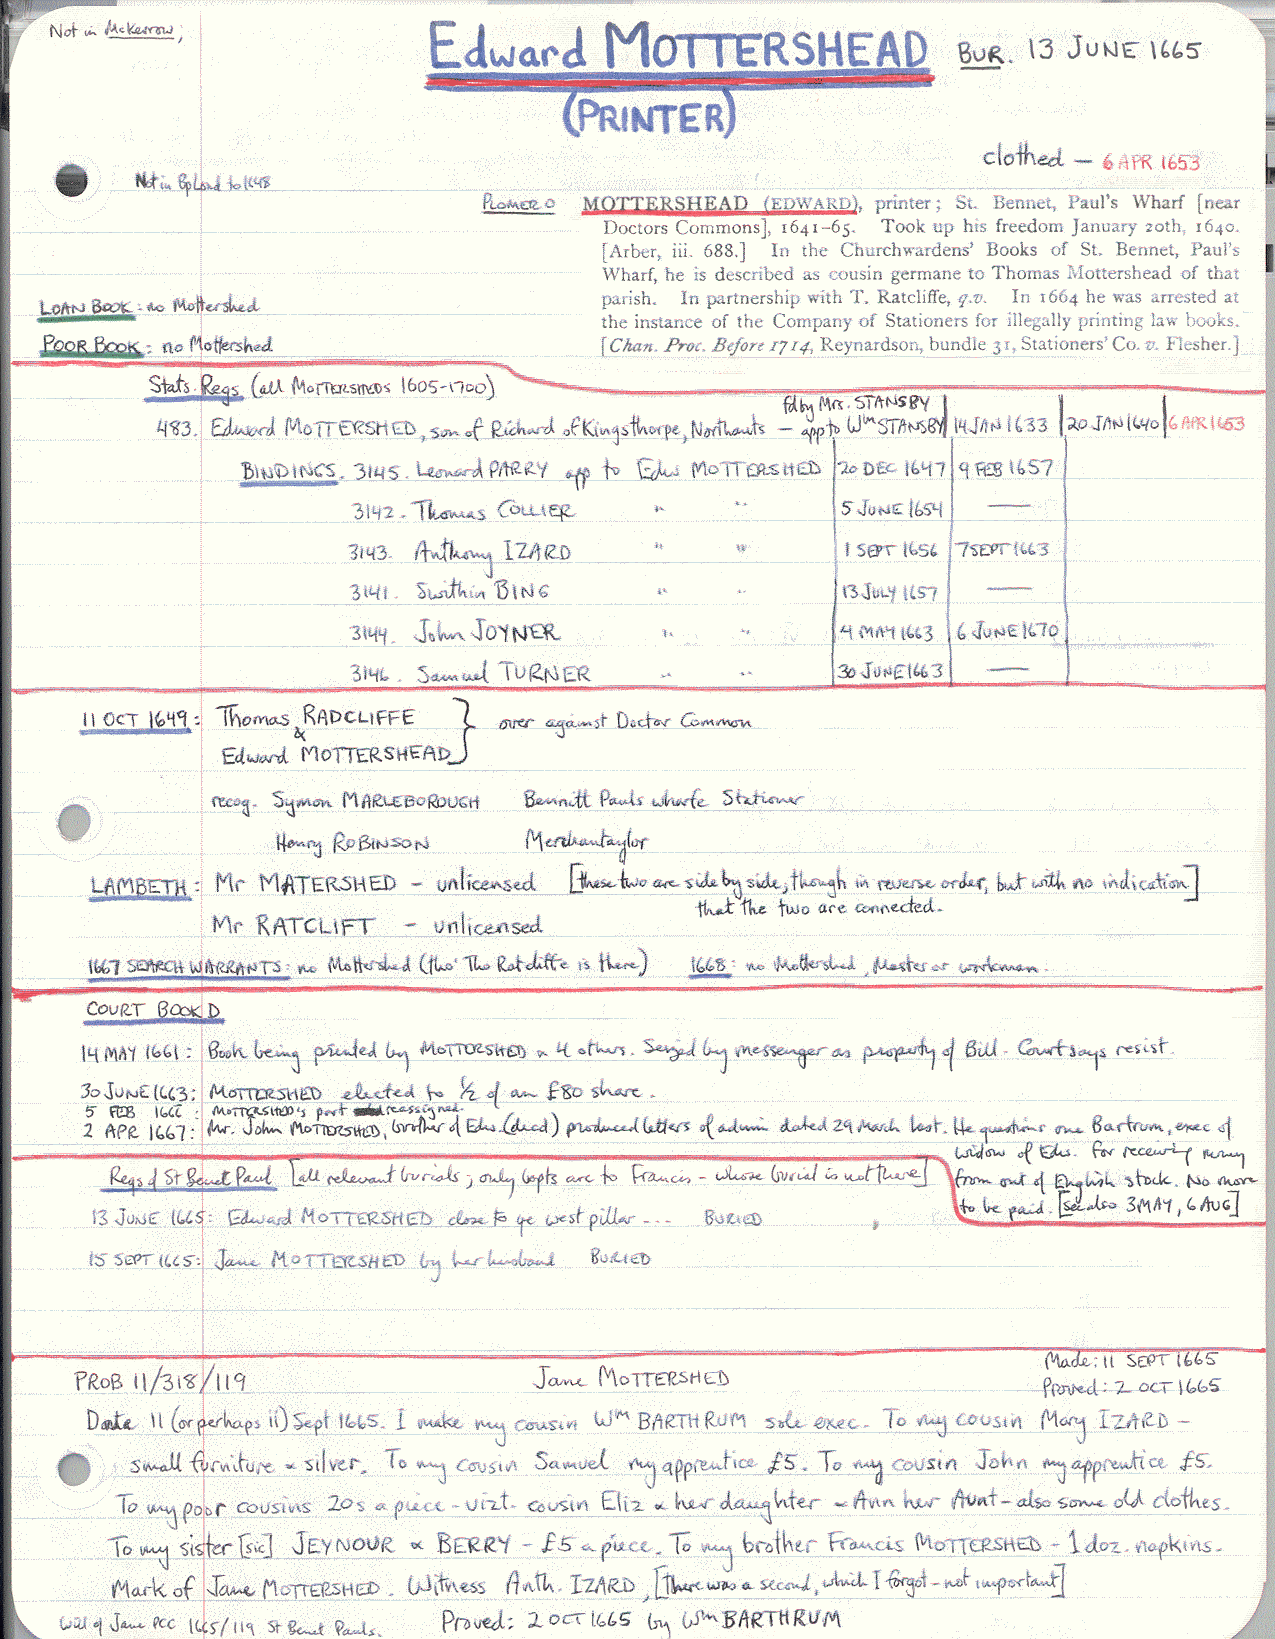 Not in McKerrow;
Edward MOTTERSHEAD BUR. 13 JUNE 1665
(PRINTER)
clothed — 6 APR 1653
Not in to 1648
PLOMER MOTTERSHEAD (EDWARD), printer; St. Bennet, Paul's Wharf [near
Doctors Commons], 1641–65. Took up his freedom January 20th, 1640.
[Arber, iii. 688.] In the Churchwardens' Books of St. Bennet, Paul's
Wharf, he is described as cousin germane to Thomas Mottershead of that
parish. In partnership with T. Ratcliffe, q.v. In 1664 he was arrested at
the instance of the Company of Stationers for illegally printing law books.
[Chan. Proc. Before 1714, Reynardson, bundle 31, Stationers' Co. v. Flesher.]
LOAN BOOK: no Mottershed
POOR BOOK: no Mottershed
Stats. Regs (all MOTTERSHEDS 1605-1700)
fd by Mrs. STANSBY
483. Edward MOTTERSHED, son of Richard of Kingsthorpe, Northants — app to Wm STANSBY 14 JAN 1633 20 JAN 1640 6 APR 1653
BINDINGS. 3145. Leonard PARRY app to Edw MOTTERSHED 20 DEC 1647 9 FEB 1657
3142. Thomas COLLIER " " 5 JUNE 1654 —
3143. Anthony IZARD " " 1 SEPT 1656 7 SEPT 1663
3141. Swithin BING " " 13 JULY 1657 —
3144. John JOYNER " " 4 MAY 1663 6 JUNE 1670
3146. Samuel TURNER " " 30 JUNE 1663 —
11 OCT 1649: Thomas RADCLIFFE
&
Edward MOTTERSHEAD } over against Doctor Common
recog. Symon MARLEBOROUGH Bennitt Pauls wharfe Stationer
Henry ROBINSON Merchantaylor
LAMBETH: Mr MATERSHED - unlicensed [these two are side by side, though in reverse order, but with no indication]
that the two are connected.
Mr RATCLIFT - unlicensed
1667 SEARCH WARRANTS: no Mottershed (tho' Tho Ratcliffe is there) 1668: no Mottershed, Master or workman.
COURT BOOK D
14 MAY 1661: Book being printed by MOTTERSHED & 4 others. Seized by messenger as property of Bill - Court says resist.
30 JUNE 1663: MOTTERSHED elected to ½ of an £80 share.
5 FEB 1666: MOTTERSHED's part reassigned.
2 APR 1667: Mr. John MOTTERSHED, brother of Edw. (decd) produced letters of admin dated 29 March last. He questions one Bartrum, exec of
widow of Edw. for receiving money
from out of English stock. No more
to be paid. [see also 3 MAY, 6 AUG]
Regs of St Benet Paul [all relevant burials; only bapts are to Francis - whose burial is not there]
13 JUNE 1665: Edward MOTTERSHED close to ye west pillar... BURIED
15 SEPT 1665: Jane MOTTERSHED by her husband BURIED
PROB 11/318/119 Jane MOTTERSHED Made: 11 SEPT 1665
Proved: 2 OCT 1665
Date 11 (or perhaps ii) Sept 1665. I make my cousin Wm BARTHRUM sole exec. To my cousin Mary IZARD -
small furniture & silver. To my cousin Samuel my apprentice £5. To my cousin John my apprentice £5.
To my poor cousins 20s a piece - vizt. cousin Eliz & her daughter & Ann her Aunt - also some old clothes.
To my sister [sic] JEYNOUR & BERRY - £5 a piece. To my brother Francis MOTTERSHED - 1 doz. napkins.
Mark of Jane MOTTERSHED. Witness Anth. IZARD, [There was a second, which I forgot - not important]
Will of Jane PCC 1665/119 St Benet Pauls. Proved: 2 OCT 1665 by Wm BARTHRUM